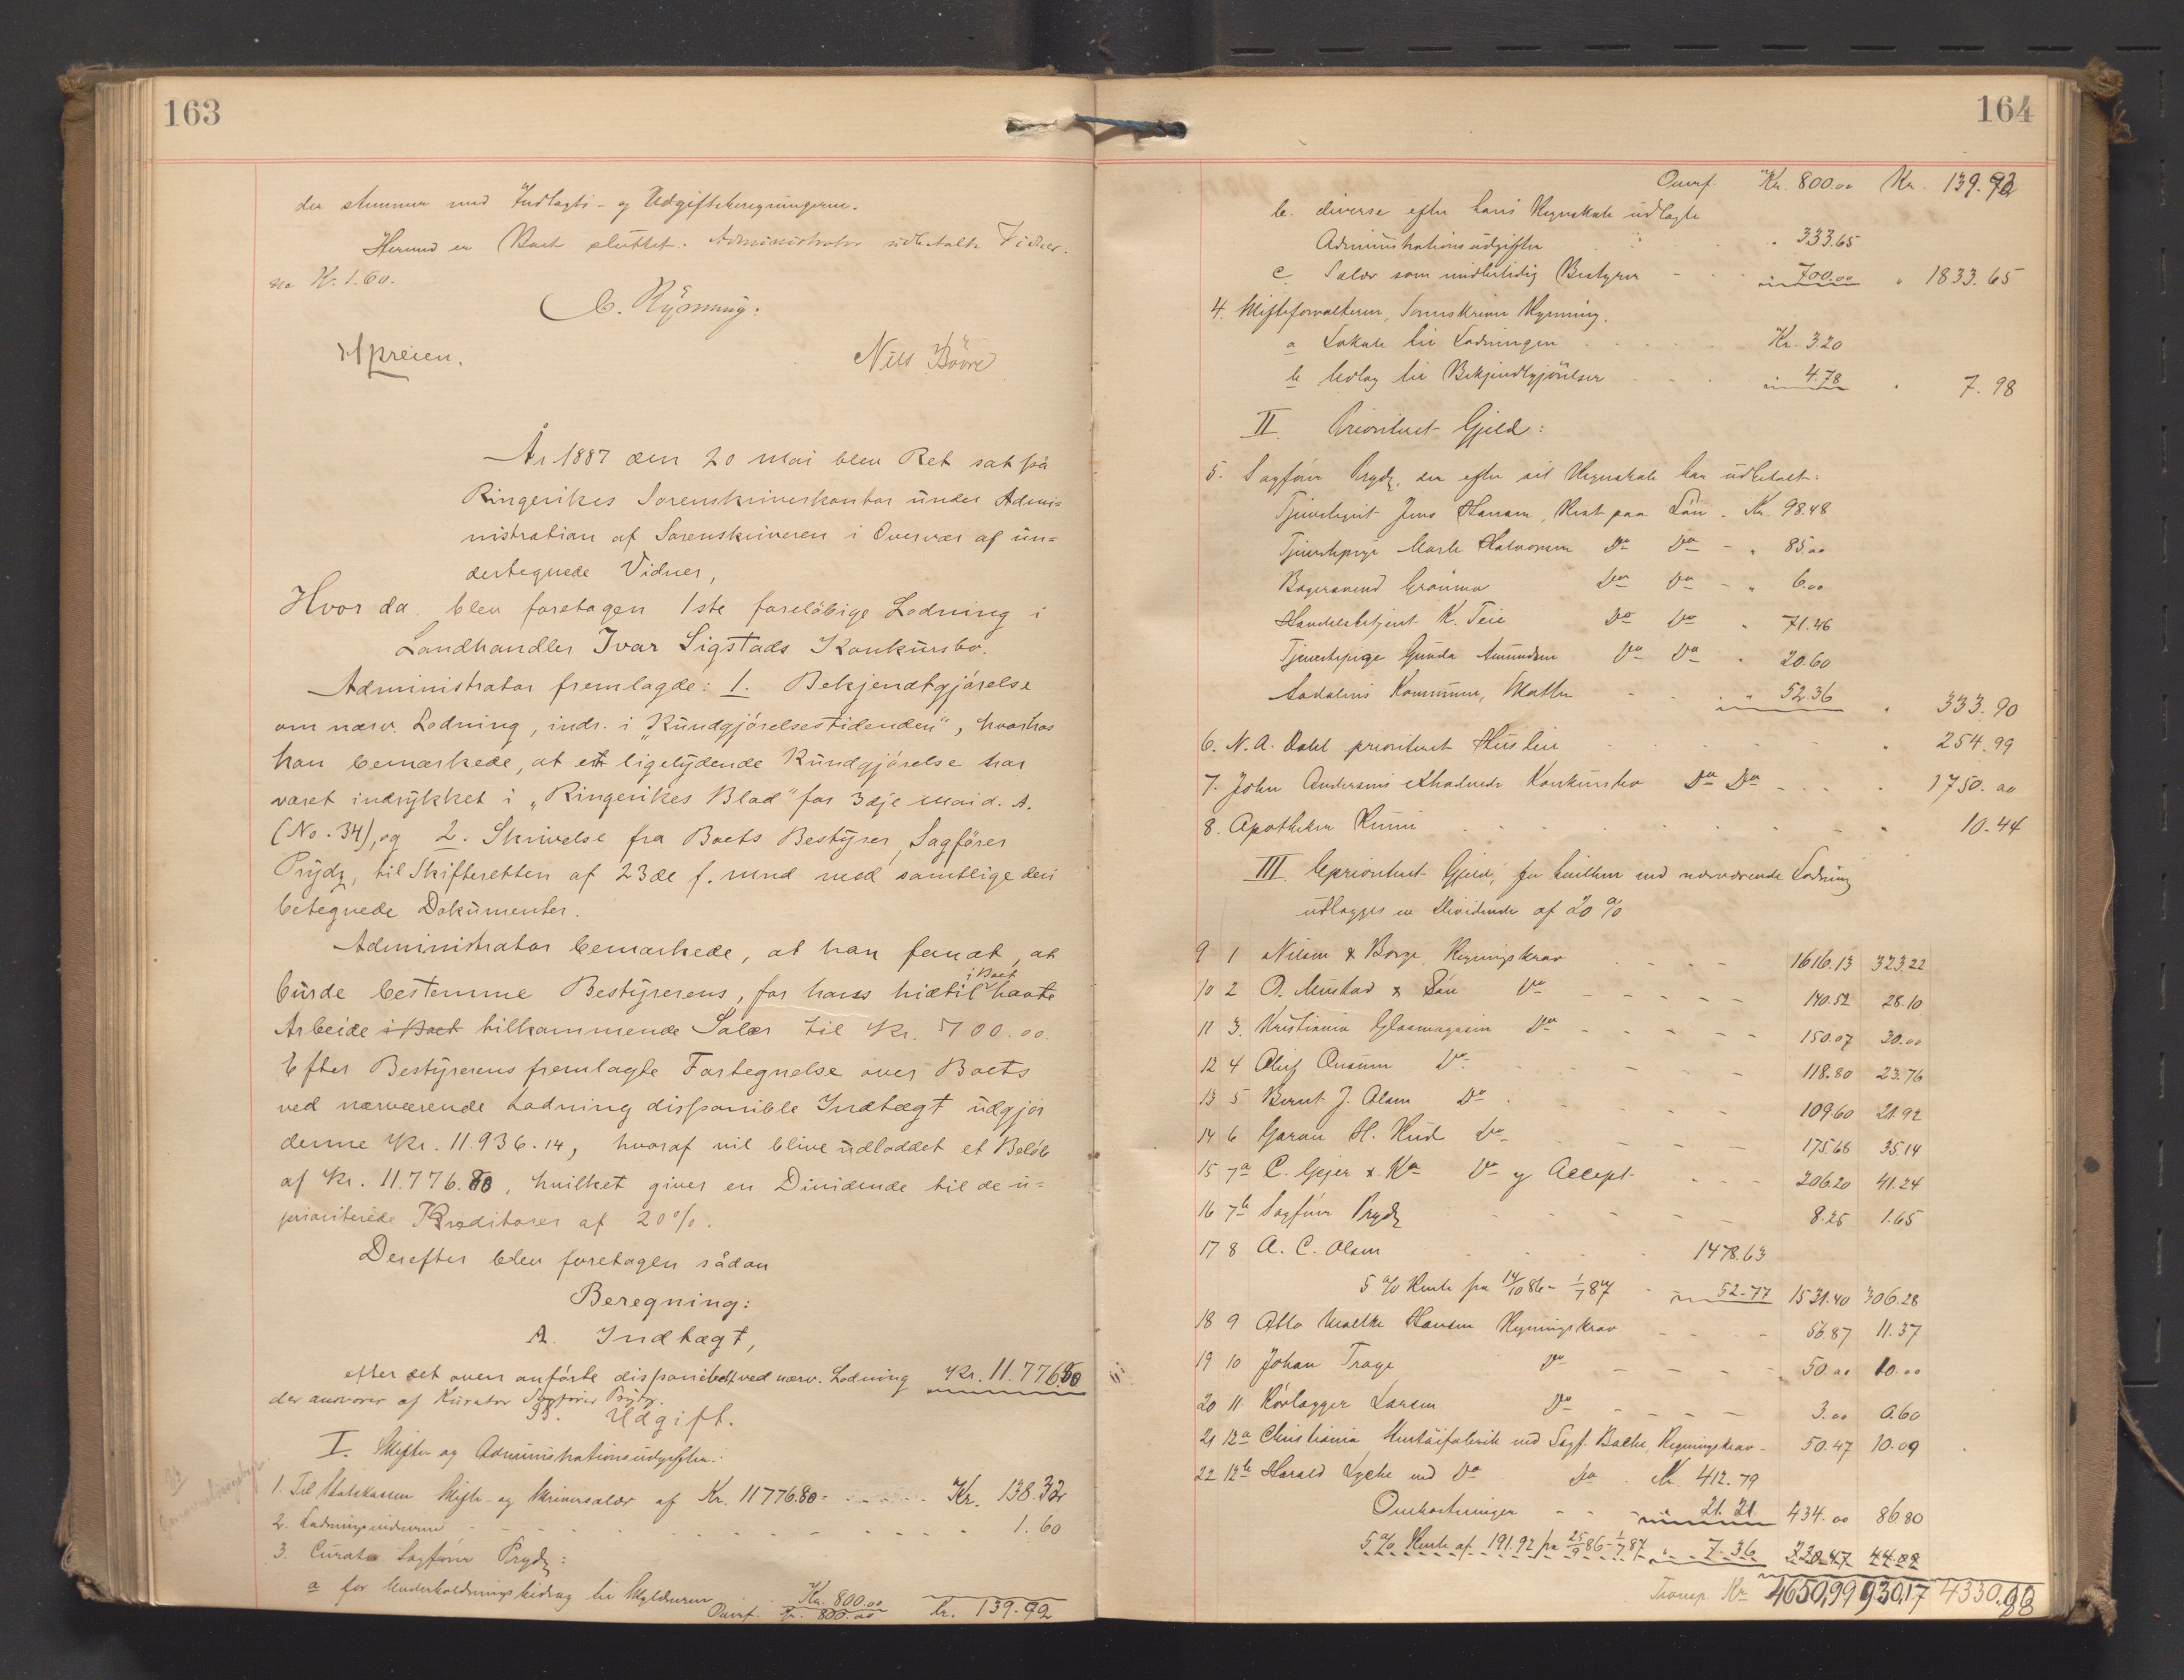 163
der stemmer med Indtægts- og Udgiftsberegningerne.
Hermed er Boet sluttet. Administrator udbetalte Vidner-
ne Kr. 1.60.
C. Rynning.
Hpreien. Nils Bööre
År 1887 den 20 Mai blev Ret sat på
Ringerikes Sorenskriverkontor under Admi-
nistration af Sorenskriveren i Overvær af un-
dertegnede Vidner,
Hvor da blev foretagen 1ste foreløbige Lodning i
Landhandler Ivar Sigstads Konkursbo.
Administrator fremlagde: 1. Bekjendtgjørelse
om nærv. Lodning, indr. i "Kundgjørelsestidenden", hvorhos
han bemærkede, at en ligelydende Kundgjørelse har
været indrykket i „Ringerikes Blad" for 3dje Mai d. A.
(No. 34), og 2. Skrivelse fra Boets Bestyrer, Sagfører
Prydz, til Skifteretten af 23de f. Mnd med samtlige deri
betegnede Dokumenter.
Administrator bemærkede, at han fandt, at
burde bestemme Bestyrerens, for hans hidtil i Boet havte
Arbeide i Boet tilkommende Salær til Kr. 700.00.
Efter Bestyrerens fremlagte Fortegnelse over Boets
ved nærværende Lodning disponible Indtægt udgjør
denne Kr. 11.936.14, hvoraf vil blive udloddet et Beløb
af Kr. 11.776.80, hvilket giver en Dividende til de u-
prioriterede Kreditorer af 20%.
Derefter blev foretagen sådan
Beregning:
A. Indtægt,
efter det oven anførte disponibelt ved nærv. Lodning Kr. 11.776.80
der ansvares af Kurator Sagfører Prydz.
B. Udgift.
I. Skifte- og Administrationsudgifter.
1. Til Statskassen Skifte- og Skriversalær af Kr. 11776.80 Kr. 138.32
2. Lodningsvidnerne 1.60
3. Curator Sagfører Prydz:
a for Underholdningsbidrag til Skyldneren Kr. 800.00
Overf. Kr. 800.00 Kr. 139.92
164
Overf. Kr. 800.00 Kr. 139.92
b. diverse efter hans Regnskab udlagte
Administrationsudgifter " 333.65
c Salær som midlertidig Bestyrer " 700.00 " 1833.65
4. Skifteforvalteren, Sorenskriver Rynning.
a Lokale til Lodningen Kr. 3.20
b Udlæg til Bekjendtgjörelser " 4.78 " 7.98
II. Prioriteret Gjeld:
5. Sagfører Prydz, der efter sit Regnskab har udbetalt:
Tjenestegut Jens Hansen, Rest paa Lön Kr. 98.48
Tjenestepige Marte Halvorsen Do Do " 85.00
Bagersvend Do Do " 6.00
Handelsbetjent K. Teie Do Do " 71.46
Tjenestepige Gunda Amundsen Do Do " 20.60
Aadalens Kommune, Skatter " 52.36 " 333.90
6. N. A. Dahl prioriteret Husleie " 254.99
7. John Andersens Konkursbo Do Do " 1750.00
8. Apotheker " 10.44
III. Uprioriteret Gjeld, for hvilken ved nærværende Lodning
udlægges en Dividende af 20 %
9 1 Nilsen & Borge, Regningskrav 1616.13 323.22
10 2 O. Mustad & Sön Do 140.52 28.10
11 3. Kristiania Glasmagasin Do 150.07 30.00
12 4 Oluf Do 118.80 23.76
13 5 Bernt J. Olsen Do 109.60 21.92
14 6 H. Do 175.68 35.14
15 7a C. Geijer & Ko Do og Accept 206.20 41.24
16 7b Sagfører Prydz 8.25 1.65
17 8 A. C. Olsen 1478.63
5 % Rente fra 14/10 86 - 1/7 87 52.77 1531.40 306.28
18 9 Otto Hansen Regningskrav 56.87 11.37
19 10 Johan Do 50.00 10.00
20 11 Rørlægger Larsen Do 3.00 0.60
21 12a Christiania ved Sagf. Bache, Regningskrav 50.47 10.09
22 12b Harald Lyche ved Do Do Kr. 412.79
Omkostninger " 21.21 434.00 86.80
5 % Rente af 191.92 fra 25/9 86 - 1/7 87 " 7.36 220.47 44.09
Transp. Kr 4650,99 930,17 4330.88